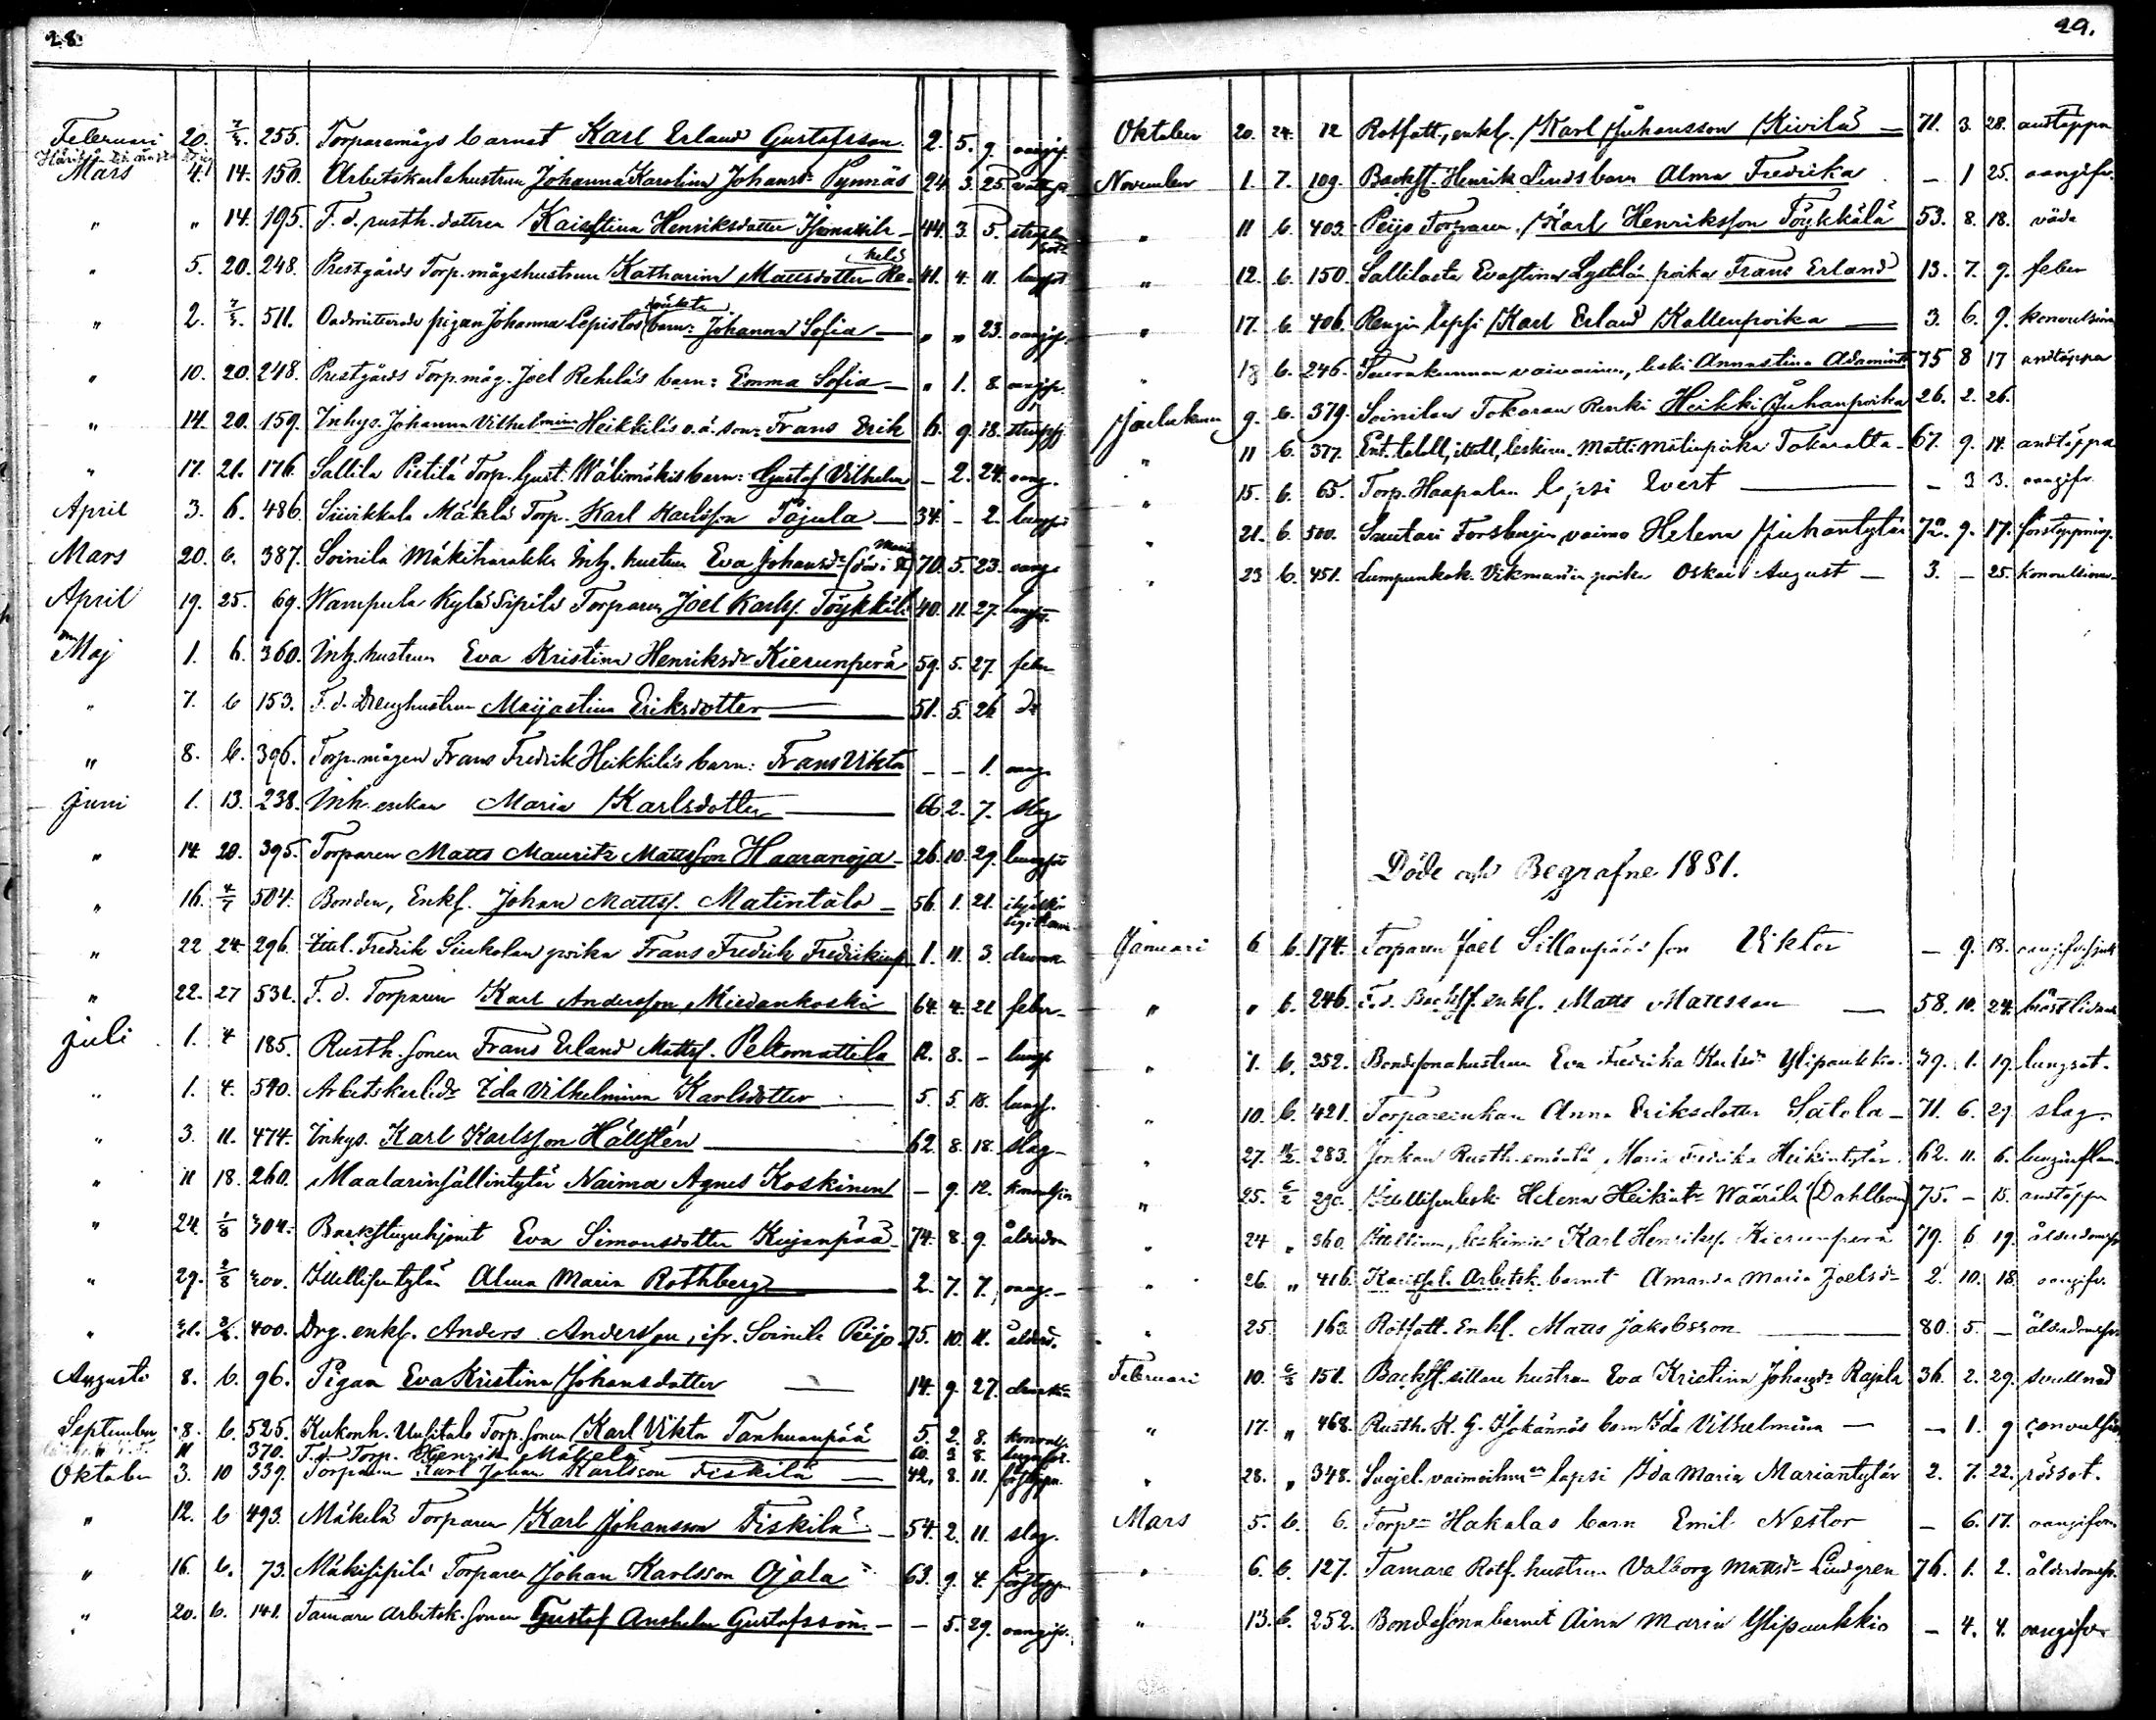 28.
Februari 20. 7/3. 255. Torparemågs barnet Karl Erland Gustafsson 2. 5. 9. oangif.
Mars 4. 14. 150. Arbetskarlshustrun Johanna Karolina Johansdr Pynnäs 24. 3. 25.
" " 14. 195. F. d. rusth. dottren Kaisastina Henriksdotter 44. 3. 5.
" 5. 20. 248. Prestgårds Torp. mågshustrun Katharina Mattsdotter Rehelä 41. 4. 11. lungsot
" 2. 7/3. 511. Oadmitterade pigan Johanna Lepistös oäkta barn: Johanna Sofia " " 23. oangif.
" 10. 20. 248. Prestgårds Torp. måg. Joel Reheläs barn: Emma Sofia " 1. 8. oangif.
" 14. 20. 159. Inhys. Johanna Vilhelmina Heikkiläs o.ä. son: Frans Erik 6. 9. 18.
" 17. 21. 176. Sallila Pietilä Torp. Gust. Wälimäkis barn: Gustaf Vilhelm – 2. 24. oang.
April 3. 6. 486. Suikkala Mäkelä Torp. Karl Karlsson Tajula 34. – 2. lungsot
Mars 20. 6. 387. Soinila Mäkiharakka Inh. hustrun Eva Johansdr 70. 5. 23. oang.
April 19. 25. 69. Wampula Kylä Sipilä Torparen Joel Karlss. Töykkälä 40. 11. 27. lungsot
Maj 1. 6. 360. Inh. hustrun Eva Kristina Henriksdr Kierunperä 59. 5. 27. feber
" 7. 6 153. F. d. Drenghustrun Maijastina Eriksdotter 51. 5. 26 do
" 8. 6. 396. Torp. mågen Frans Fredrik Heikkiläs barn: Frans Viktor – – 1. oang.
Juni 1. 13. 238. Inh. enkan Maria Karlsdotter 66. 2. 7. slag
" 14. 20. 395. Torparen Matts Mauritz Mattsson Haaranoja 26. 10. 29. lungsot
" 16. 4/7 504. Bonden, Enkl. Johan Mattss. Matintalo 56. 1. 21.
" 22 24 296. Ittel. Fredrik Sinkolan poika Frans Fredrik Fredrikinp. 1. 11. 3. drunk.
" 22. 27 531. F. d. Torparen Karl Andersson Miedankoski 64. 4. 21. feber
Juli 1. 4 185. Rusth. sonen Frans Erland Mattss. Peltomattila 12. 8. – lungs.
" 1. 4. 540. Arbetskarlsdr Ida Vilhelmina Karlsdotter 5. 5. 18. lungs.
" 3. 11. 474. Inhys. Karl Karlsson Hällstén 62. 8. 18. slag
" 11 18. 260. Maalarinsällintytär Naima Agnes Koskinen – 9. 12.
" 24. 1/8 304. Backstuguhjonet Eva Simonsdotter Kujanpää 74. 8. 9. ålderdom
" 29. 2/8 Itsellisentytär Alma Maria Rothberg 2. 7. 7. oang.
" 400. Drg. enkl. Anders Andersson, ifr. Soinila Peijo 75. 10. 11. ålderd.
Augusti 8. 6. 96. Pigan Eva Kristina Johansdotter 14. 9. 27.
September 8. 6. 525. Kukonh. Uusitalo Torp. sonen Karl Viktor Tanhuanpää 5. 2. 8. konvuls.
" 11 370. F. d. Torp. Henrik Mäkelä 60. 3. 8.
Oktober 3. 10 339. Torparen Karl Johan Karlsson Fiskilä 42. 8. 11.
" 12. 6 493. Mäkelä Torparen Karl Johansson Fiskilä 54. 2. 11. slag.
" 16. 6. 73. Mäkisipilä Torparen Johan Karlsson Ojala 63. 9. 4.
" 20. 6. 141. Tamare Arbetsk. sonen Gustaf Anshelm Gustafsson – 5. 29. oangif.
29.
Oktober 20. 24. 12 Rotfatt., enkl. Karl Juhansson Kivilä 71. 3. 28. andtäppa
November 1. 7. 109. Backst. Henrik Linds barn Alma Fredrika – 1 25. oangifv.
" 11 6. 403. Peijo Torparen Karl Henriksson Töykkälä 53. 8. 18. våda
" 12. 6. 150. Sallilasta Evastina Lystilän poika Frans Erland 13. 7. 9. feber
" 17. 6. 406. Rengin lapsi Karl Erland Kallenpoika 3. 6. 9. konvulsion
" 18 6. 246. Seurakunnan vaivainen, leski Annastina Adamintr 75 8 17 andtäppa
Joulukuu 9. 6. 379. Soinilan Tokaran Renki Heikki Juhanpoika 26. 2. 26.
" 11 6. 377. Ent. taloll., itsell., leskim. Matti Matinpoika Tokaralta 67. 9. 14. andtäppa
" 15. 6. 65. Torp. Haapalan lapsi Evert – 3 3. oangifv.
" 21. 6. 500. Suutari Forsbergin vaimo Helena Juhantytär 72. 9. 17. förstoppning.
" 23 6. 451. Lumpunkok. Vikmanin poika Oskar August 3. – 25. konvulsion
Döde och Begrafne 1881.
Januari 6 6. 174. Torparen Joel Sillanpääs son Viktor – 9. 18.
" " 6. 246. F. d. Backst. enkl. Matts Mattsson 58. 10. 24. bröstlidande
" 7. 6. 352. Bondsonahustrun Eva Fredrika Karlsdr Ylipaukkio 39. 1. 19. lungsot.
" 10. 6. 421. Torpareenkan Anna Eriksdotter Satola 71. 6. 29 slag.
" 27. 283. Jonkan Rusth. emäntä Maria Fredrika Heikintytär 62. 11. 6. lunginflam.
" 25. 6/2 290. Itsellisenleski Helena Heikintr Wäärälä (Dahlbom) 75. – 15. andtäppa
" 24 " 360. Itsellinen, leskimies Karl Henrikss. Kierunperä 79. 6 19. ålderdomssv.
" 26. " 416. Arbetsk. barnet Amanda Maria Joelsdr 2. 10. 18. oangifv.
" 25. 163. Rotfatt. Enkl. Matts Jakobsson 80. 5. – ålderdomssv.
Februari 10. 6/3 151. Backst. sittare hustrun Eva Kristina Johansdr Rajala 36. 2. 29. svullnad
" 17. " 468. Rusth. K. G. Isokännös barn Ida Vilhelmina – 1. 9 convulsion
" 28. " 348. Suojel. vaimoihm:en lapsi Ida Maria Mariantytär 2. 7. 22. rödsot.
Mars 5. 6. 6. Torp:n Hakalas barn Emil Nestor – 6. 17. oangifven
" 6. 6. 127. Tamare Rotf. hustrun Valborg Mattsdr Lindgren 76. 1. 2. ålderdomssv.
" 13. 6. 252. Bondesonabarnet Aina Maria Ylipaukkio – 4. 4. oangifv.